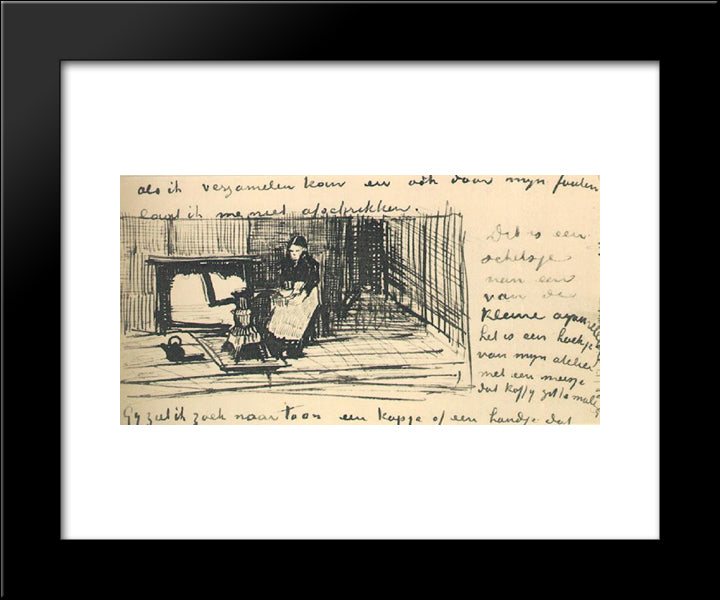 als ik verzamelen kan en ook door mijn fouten
laat ik me niet afschrikken.
Dit is een
schetsje
van een
van de
kleine
het is een hoekje
van mijn atelier
met een meisje
dat koffy zit te malen
Gy ziet ik zoek naar toon een kopje of een handje dat